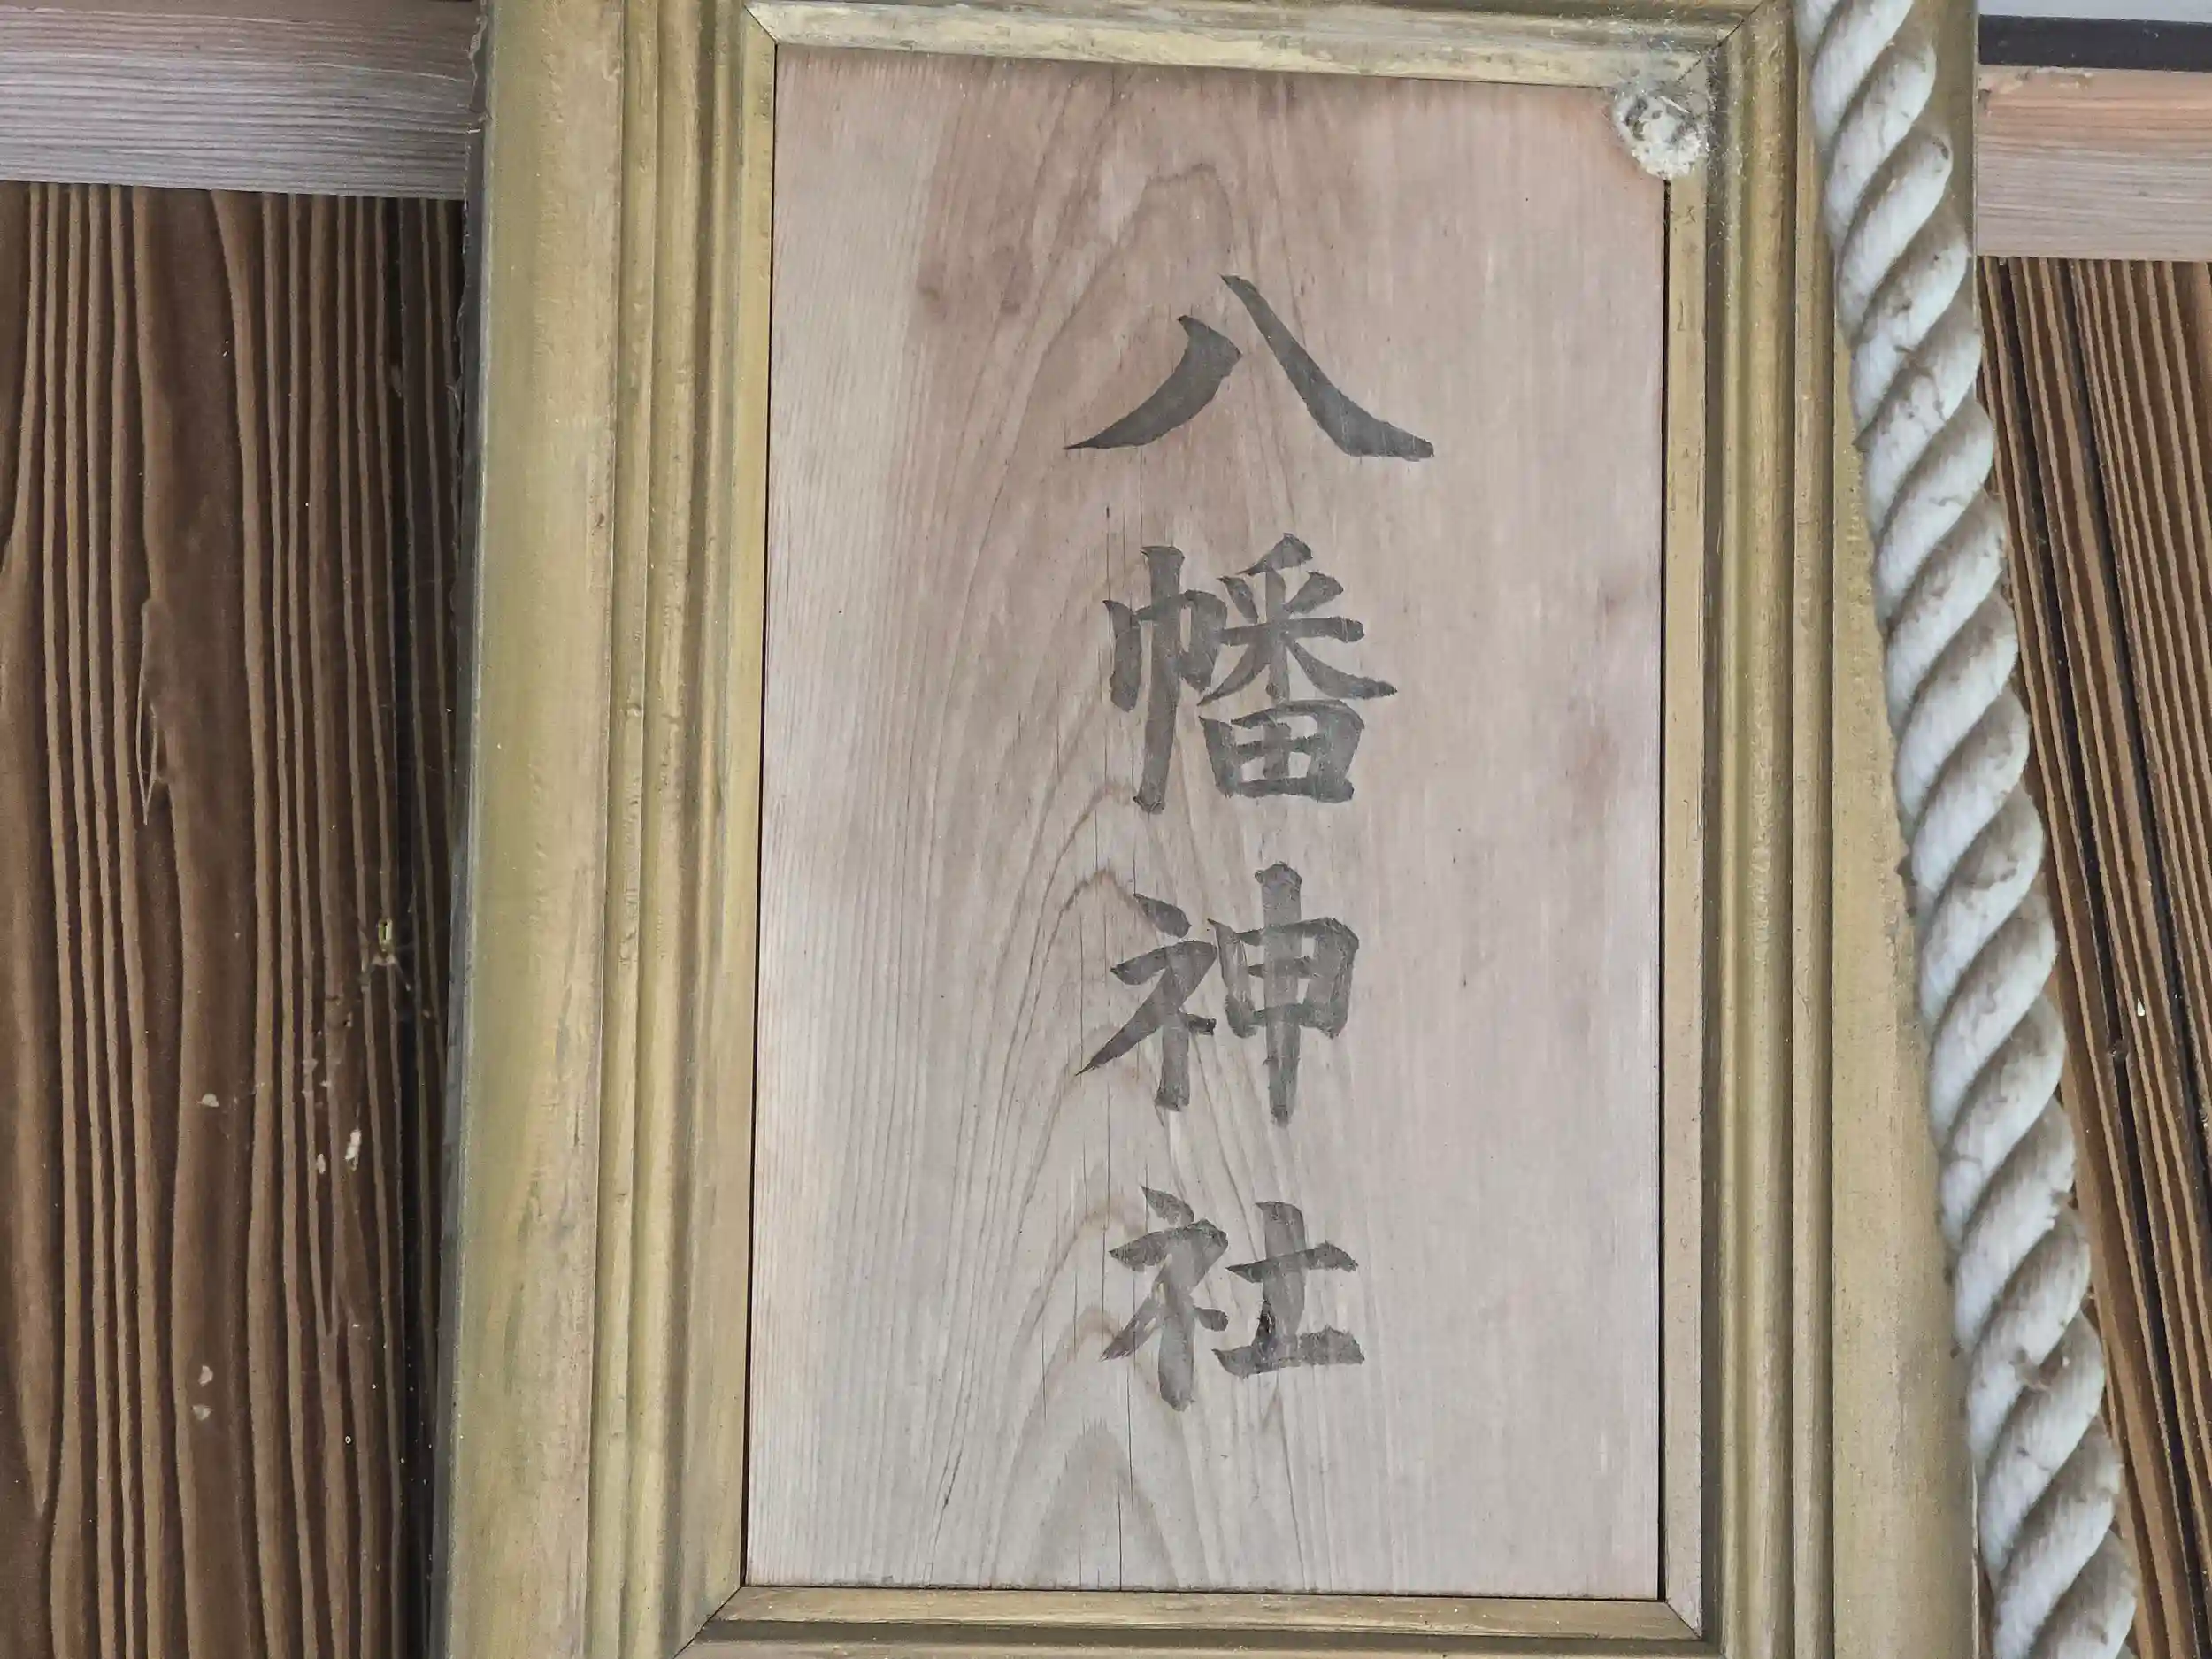 八幡神社